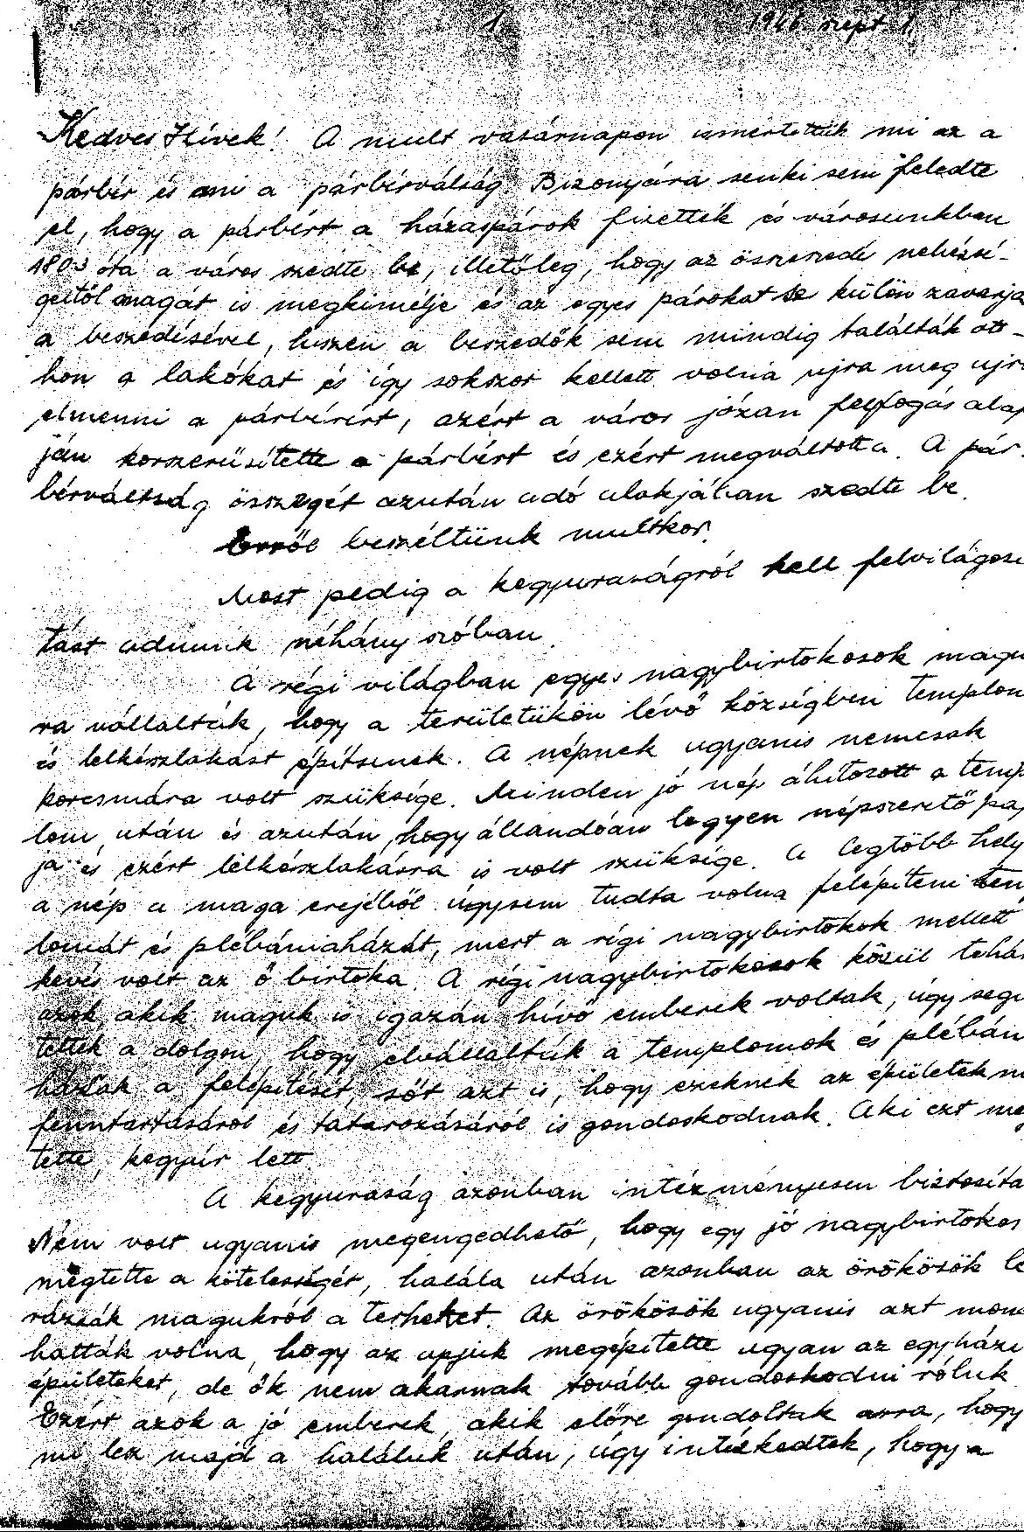 1. 1946. szept. 1.
Kedves Hívek! A mult vasárnapon ismertettük mi az a
párbér és ami a párbérváltság. Bizonyára senki sem feledte
el, hogy a párbért a házaspárok fizették és városunkban
1803 óta a város szedte be, illetőleg, hogy az összeszedé nehézsé-
geitől magát is megkimélje és az egyes párokat se külön zavarja
a beszedésével, hiszen a beszedők sem mindig találták ott-
hon a lakókat és így sokszor kellett volna ujra meg ujra
elmenni a párbérért, azért a város józan felfogás alap
ján korszerűsítette a párbért és ezért megváltotta. A pár-
bérváltság összegét azután adó alakjában szedte be.
Erről beszéltünk multkor.
Most pedig a kegyuraságról kell felvilágosi
tást adnunk néhány szóban.
A régi világban egyes nagybirtokosok maguk
ra vállalták, hogy a területükön lévő községben templom
és lelkészlakást építsenek. A népnek ugyanis nemcsak
korcsmára volt szüksége. Minden jó nép áhítozott a temp
lom után és azután, hogy állandóan legyen népszerető pap
ja és ezért lelkészlakásra is volt szüksége. A legtöbb hely
a nép a maga erejéből úgysem tudta volna felépíteni tem
lomát és plébániaházát, mert a régi nagybirtokok mellett
kevés volt az ő birtoka. A régi nagybirtokosok közül tehá
azok, akik maguk is igazán hívő emberek voltak, úgy segí
tettek a dolgon, hogy elvállalták a templomok és plébán
házak a felépítését, sőt azt is, hogy ezeknek az épületekn
fenntartásáról és tatarozásáról is gondoskodnak. Aki ezt meg
tette, kegyúr lett.
A kegyuraság azonban intézményesen biztosíta
Nem volt ugyanis megengedhető, hogy egy jó nagybirtokos
megtette a kötelességét, halála után azonban az örökösök le
rázzák magukról a terheket. Az örökösök ugyanis azt mon
hatták volna, hogy az apjuk megépítette ugyan az egyházi
épületeket, de ők nem akarnak tovább gondoskodni róluk.
Ezért azok a jó emberek, akik előre gondoltak arra, hogy
mi lesz majd a haláluk után, úgy intézkedtek, hogy a